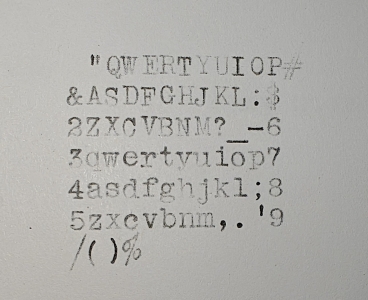 "QWERTYUIOP#
&ASDFGHJKL:$
2ZXCVBNM?_-6
3qwertyuiop7
4asdfghjkl;8
5zxcvbnm,.'9
/()%